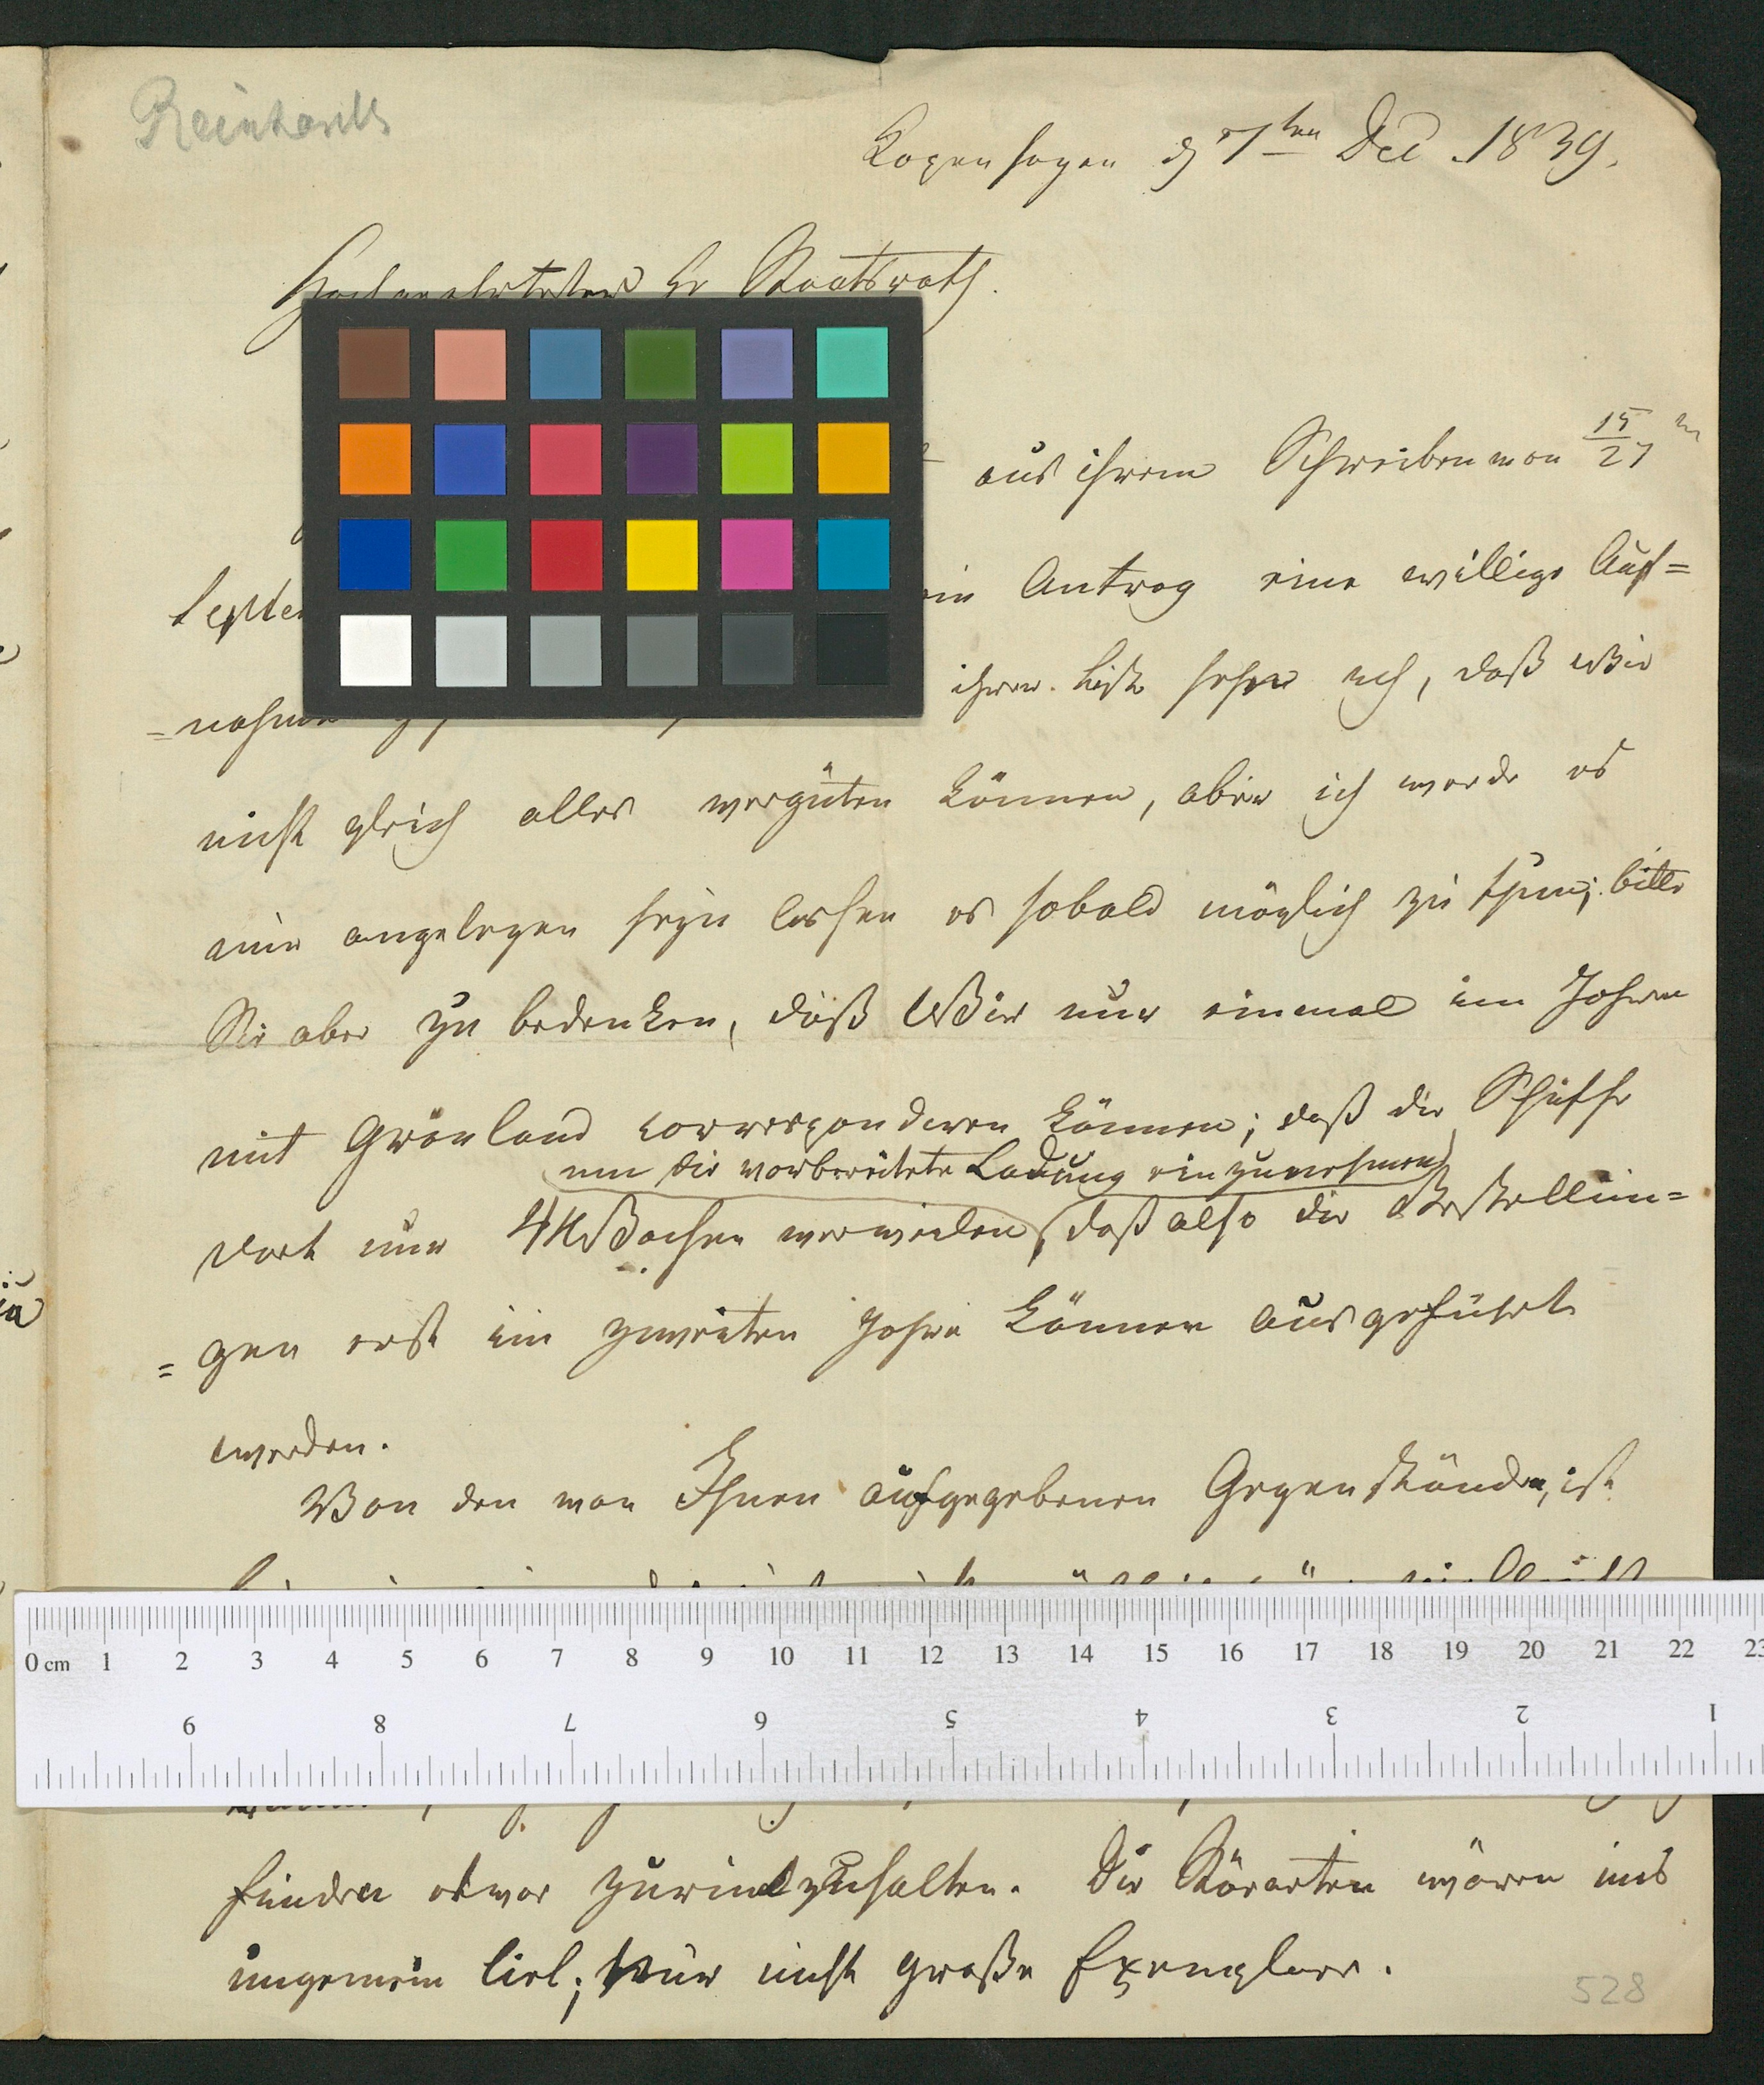 Reinhardt
Kopenhagen d 7ten Dec. 1839.
Hochgeehrtester Hr Staatsrath.
aus ihrem Schreiben von 15/27
Septem
Antrag eine willige Auf=
=nahme
ihrer Liste sehen ich, daß Wir
nicht gleich alles vergüten können, aber ich werde es
mir angelegen seyn lassen es sobald möglich zu thun; bitte
Sie aber zu bedenken, daß Wir nur einmal im Jahre
mit Grönland correspondiren können; daß die Schiffe
um die vorbereitete Ladung einzunehmen
dort nur 4 Wochen verweilen, daß also die Bestellun=
=gen erst im zweiten Jahre können ausgeführt
werden.
Von den von Ihnen aufgegebenen Gegenstände, ist
0 cm 1 2 3 4 5 6 7 8 9 10 11 12 13 14 15 16 17 18 19 20 21 22 23
9 8 7 6 5 4 3 2 1
finden etwas zurückzuhalten. Die Störarten wären uns
ungemein lieb; nur nicht große Exemplare.
528